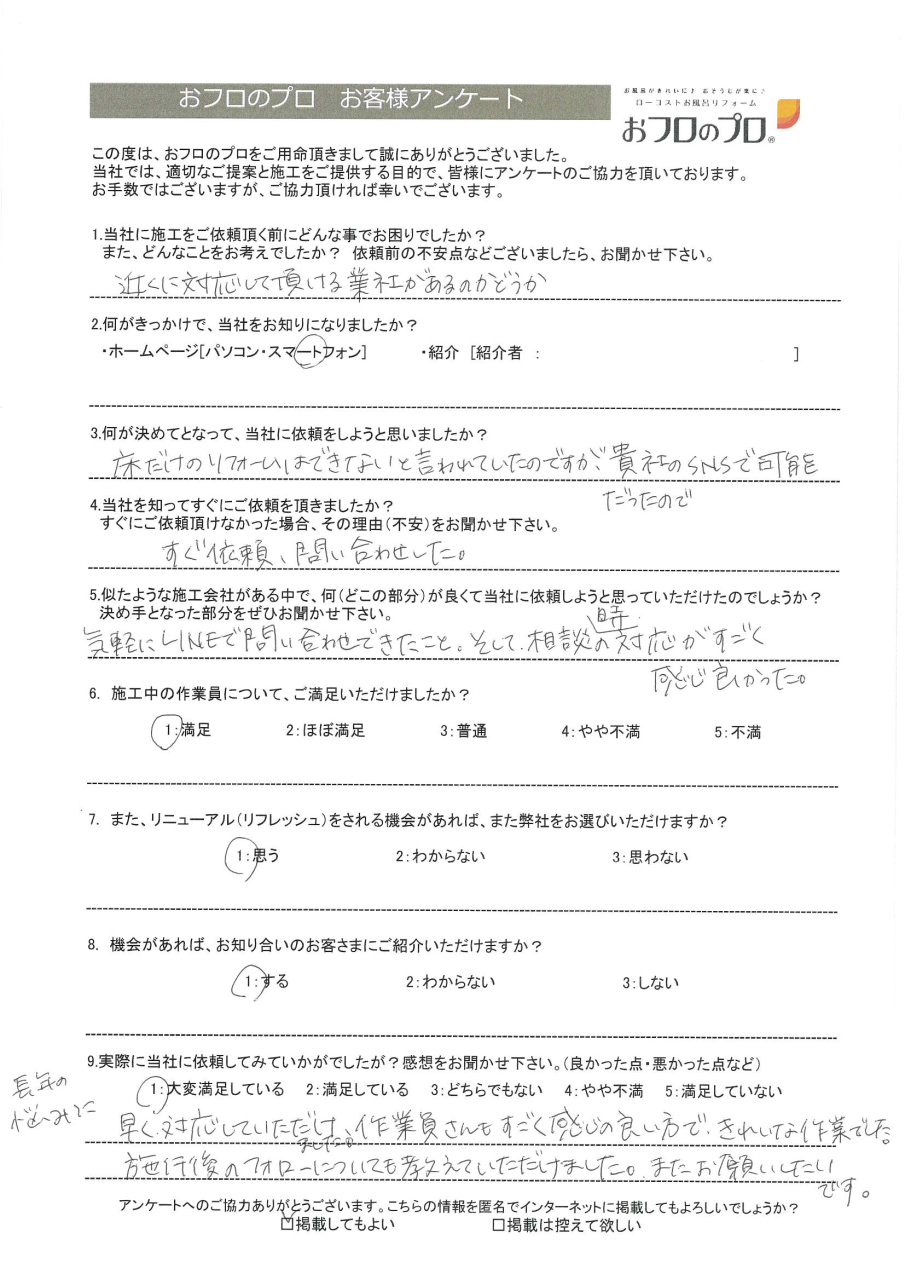 おフロのプロ　お客様アンケート
お風呂がきれいに♪ おそうじが楽に♪
ローコストお風呂リフォーム
おフロのプロ®
この度は、おフロのプロをご用命頂きまして誠にありがとうございました。
当社では、適切なご提案と施工をご提供する目的で、皆様にアンケートのご協力を頂いております。
お手数ではございますが、ご協力頂ければ幸いでございます。
1.当社に施工をご依頼頂く前にどんな事でお困りでしたか？
また、どんなことをお考えでしたか？ 依頼前の不安点などございましたら、お聞かせ下さい。
近くに対応して頂ける業社があるのかどうか
2.何がきっかけで、当社をお知りになりましたか？
・ホームページ[パソコン・スマートフォン]　・紹介 [紹介者 ：　]
3.何が決めてとなって、当社に依頼をしようと思いましたか？
床だけのリフォームはできないと言われていたのですが、貴社のSNSで可能
だったので
4.当社を知ってすぐにご依頼を頂きましたか？
すぐにご依頼頂けなかった場合、その理由（不安）をお聞かせ下さい。
すぐ依頼、問い合わせした。
5.似たような施工会社がある中で、何（どこの部分）が良くて当社に依頼しようと思っていただけたのでしょうか？
決め手となった部分をぜひお聞かせ下さい。
気軽にLINEで問い合わせできたこと。そして、相談時の対応がすごく
感じ良かった。
6. 施工中の作業員について、ご満足いただけましたか？
1：満足　2：ほぼ満足　3：普通　4：やや不満　5：不満
7. また、リニューアル（リフレッシュ）をされる機会があれば、また弊社をお選びいただけますか？
1：思う　2：わからない　3：思わない
8. 機会があれば、お知り合いのお客さまにご紹介いただけますか？
1：する　2：わからない　3：しない
9.実際に当社に依頼してみていかがでしたが？感想をお聞かせ下さい。（良かった点・悪かった点など）
1：大変満足している　2：満足している　3：どちらでもない　4：やや不満　5：満足していない
長年の
悩みに
早く対応していただけ、作業員さんもすごく感じの良い方で、きれいな作業でした。
ました。
施行後のフォローについても教えていただけました。またお願いしたい
です。
アンケートへのご協力ありがとうございます。こちらの情報を匿名でインターネットに掲載してもよろしいでしょうか？
☑掲載してもよい　□掲載は控えて欲しい